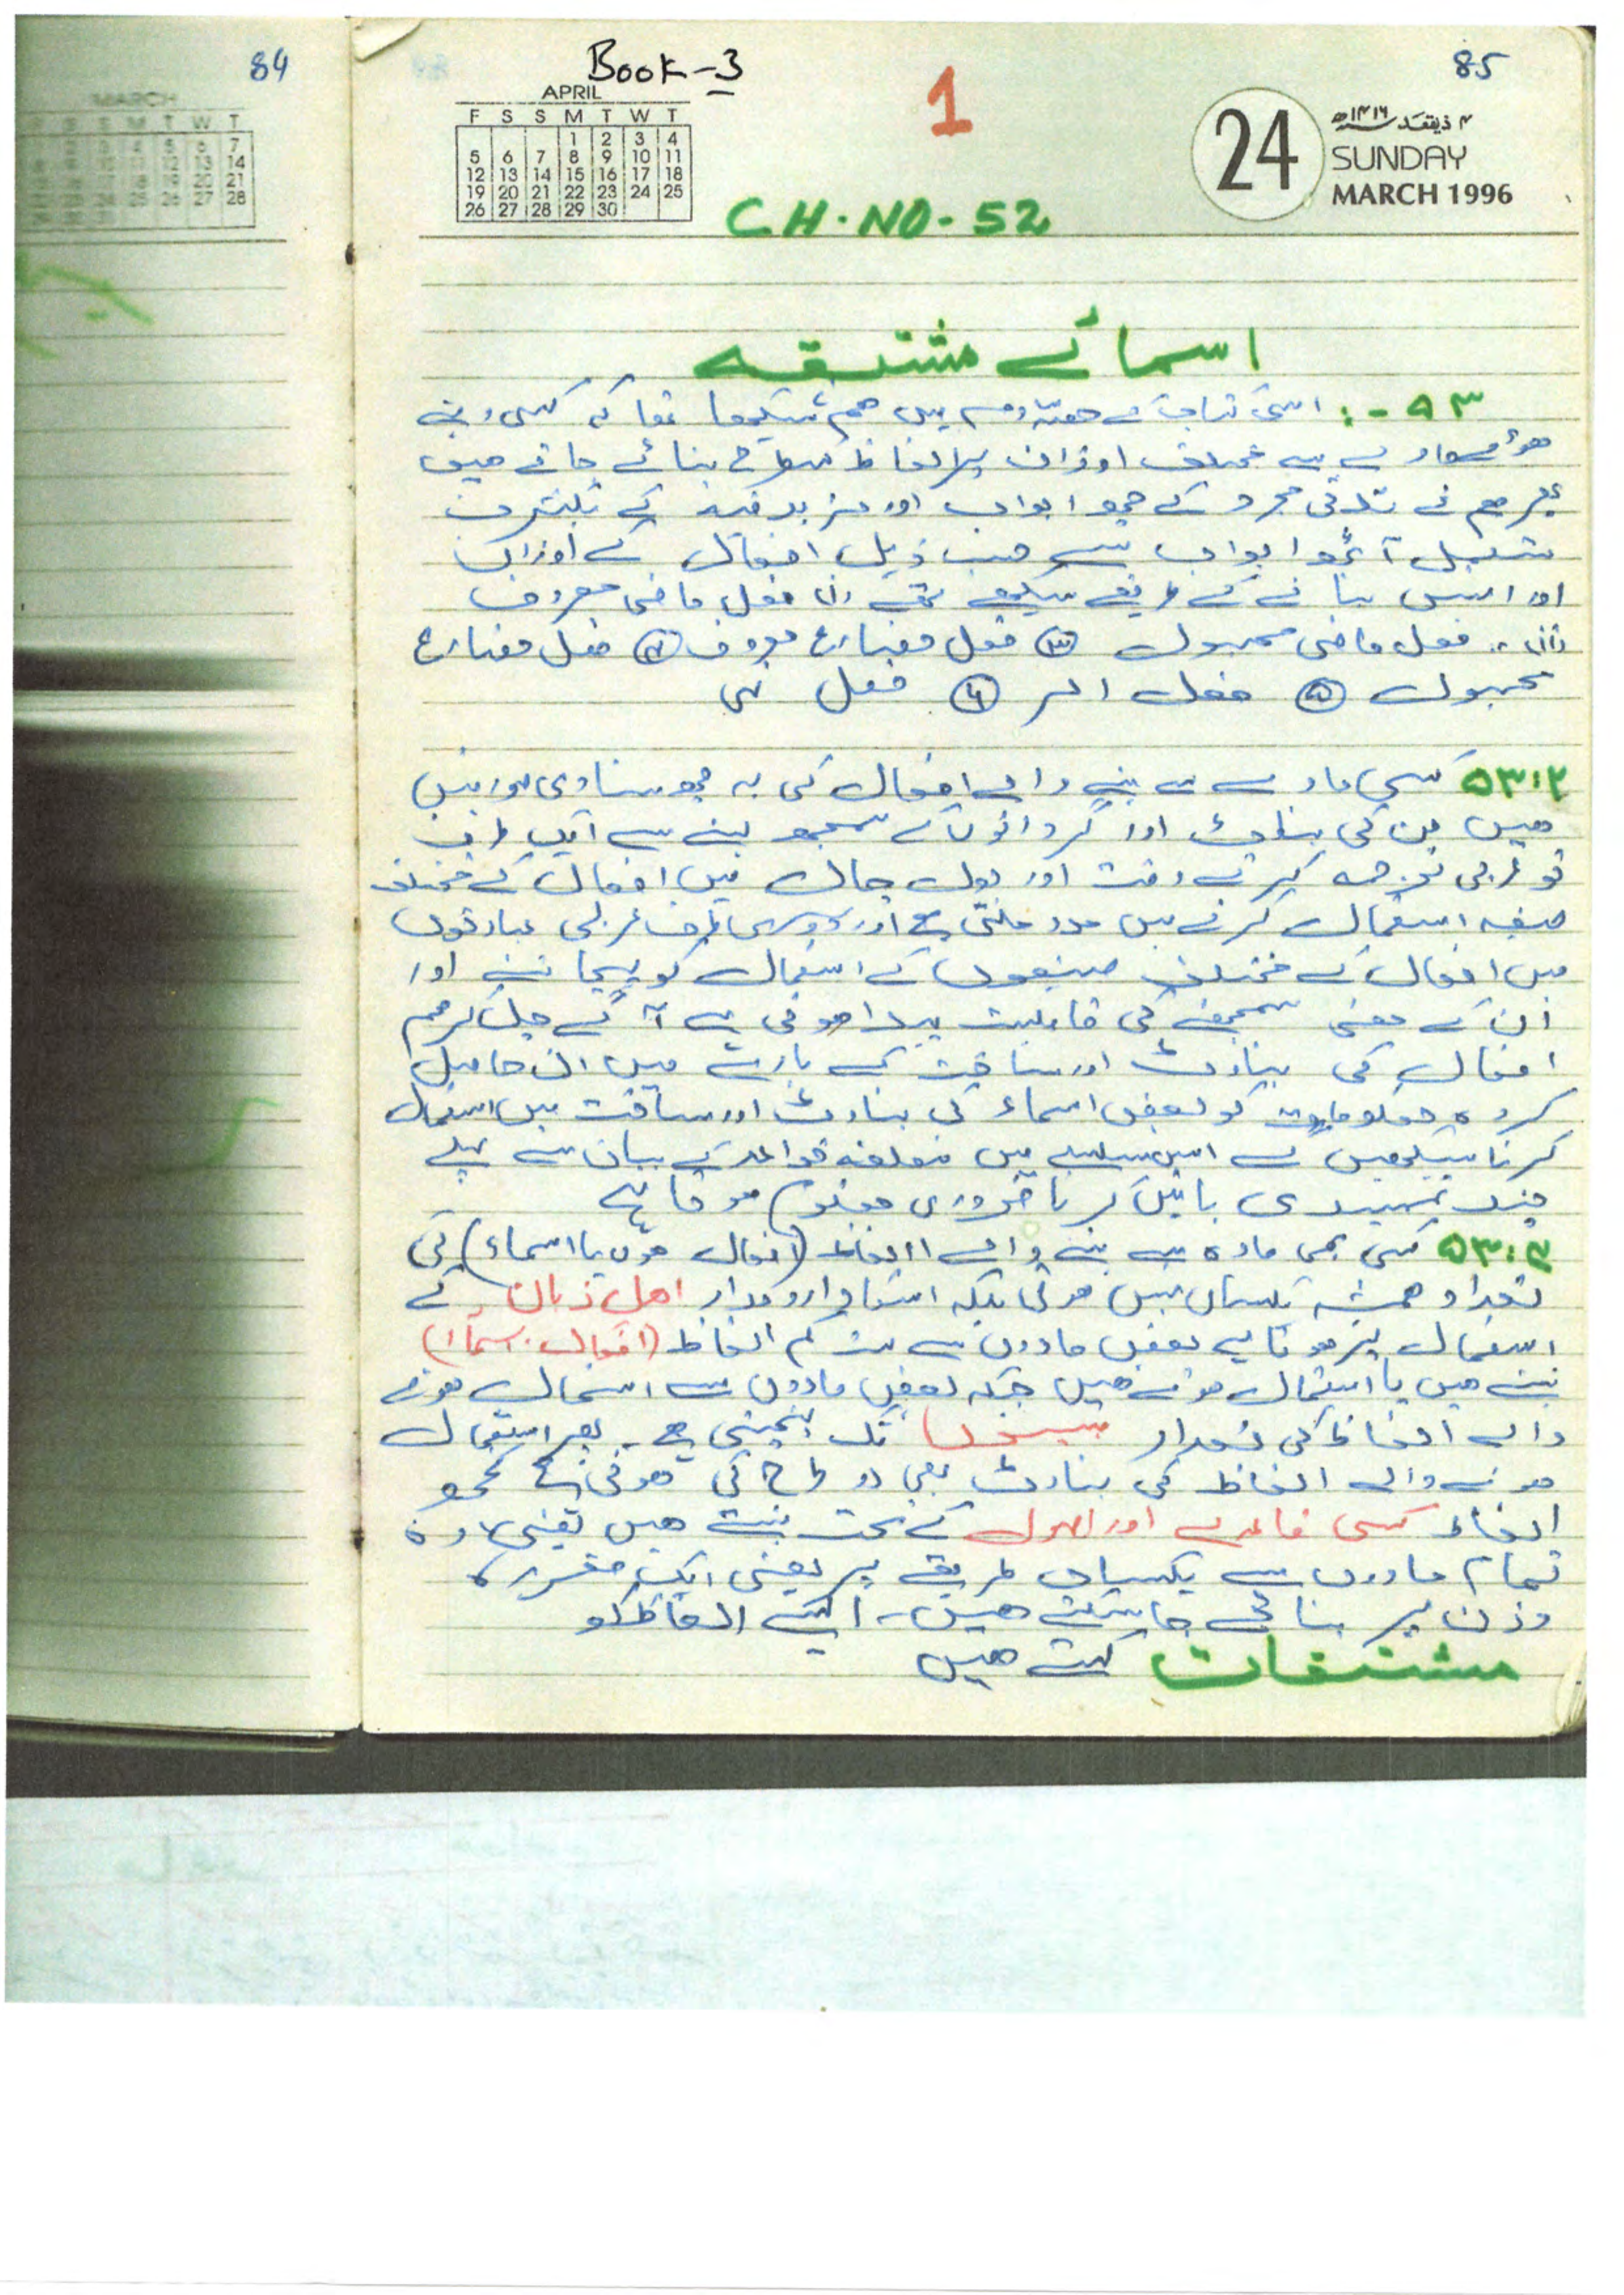 84
MARCH
Book-3
85
1
APRIL
F S S M T W T
1 2 3 4
5 6 7 8 9 10 11
12 13 14 15 16 17 18
19 20 21 22 23 24 25
26 27 28 29 30
24
۴ ذیقعد ۱۴۱۶ھ
SUNDAY
MARCH 1996
CH.NO-52
اسمائے مشتقہ
۵۳ -: اس کتاب کے حصہ دوم میں ھم سیکھا تھا کہ کسی دئیے
ھوئے مادے سے مختلف اوزان پر الفاظ کس طرح بنائے جاتے ھیں
پھر ھم نے ثلاثی مجرد کے چھ ابواب اور مزید فیہ کے
آٹھ ابواب سے حسب ذیل افعال کے اوزان
اور انہیں بنانے کے طریقے سیکھے تھے (i) فعل ماضی معروف
(ii) فعل ماضی مجہول ③ فعل مضارع معروف ④ فعل مضارع
مجہول ⑤ فعل امر ⑥ فعل نہی
۵۳:۲ کسی مادے سے بننے والے افعال کی یہ چھ بنیادی صورتیں
ھیں جن کی بناوٹ اور گردانوں کے سمجھ لینے سے ایک طرف
تو عربی ترجمہ کرتے وقت اور بول چال میں افعال کے مختلف
صیغہ استعمال کرنے میں مدد ملتی ھے اور دوسری طرف عربی عبارتوں
میں افعال کے مختلف صیغوں کے استعمال کو پہچاننے اور
ان کے معنی سمجھنے کی قابلیت پیدا ھوتی ہے آگے چل کر ھم
افعال کی بناوٹ اور ساخت کے بارے میں ان حاصل
کردہ معلومات کو بعض اسماء کی بناوٹ اور ساخت میں استعمال
کرنا سیکھیں گے اس سلسلے میں متعلقہ قواعد کے بیان سے پہلے
چند تمہیدی باتیں کرنا ضروری معلوم ھوتا ہے
۵۳:۳ کسی بھی مادہ سے بننے والے الفاظ (افعال ھوں یا اسماء) کی
تعداد ھمیشہ یکساں نہیں ھوتی بلکہ اسکا دارومدار اھل زبان کے
استعمال پر ھوتا ہے بعض مادوں سے بہت کم الفاظ (افعال. اسماء)
بنتے ھیں یا استعمال ھوتے ھیں جبکہ بعض مادوں سے استعمال ھونے
والے الفاظ کی تعداد بیسیوں تک پہنچتی ھے۔ پھر استعمال
ھونے والے الفاظ کی بناوٹ بھی دو طرح کی ھوتی ہے کچھ
الفاظ کسی قاعدے اور اصول کے تحت بنتے ھیں یعنی وہ
تمام مادوں سے یکساں طریقے پر یعنی ایک مقررہ
وزن پر بنائے جا سکتے ھیں۔ ایسے الفاظ کو
مشتقات کہتے ھیں